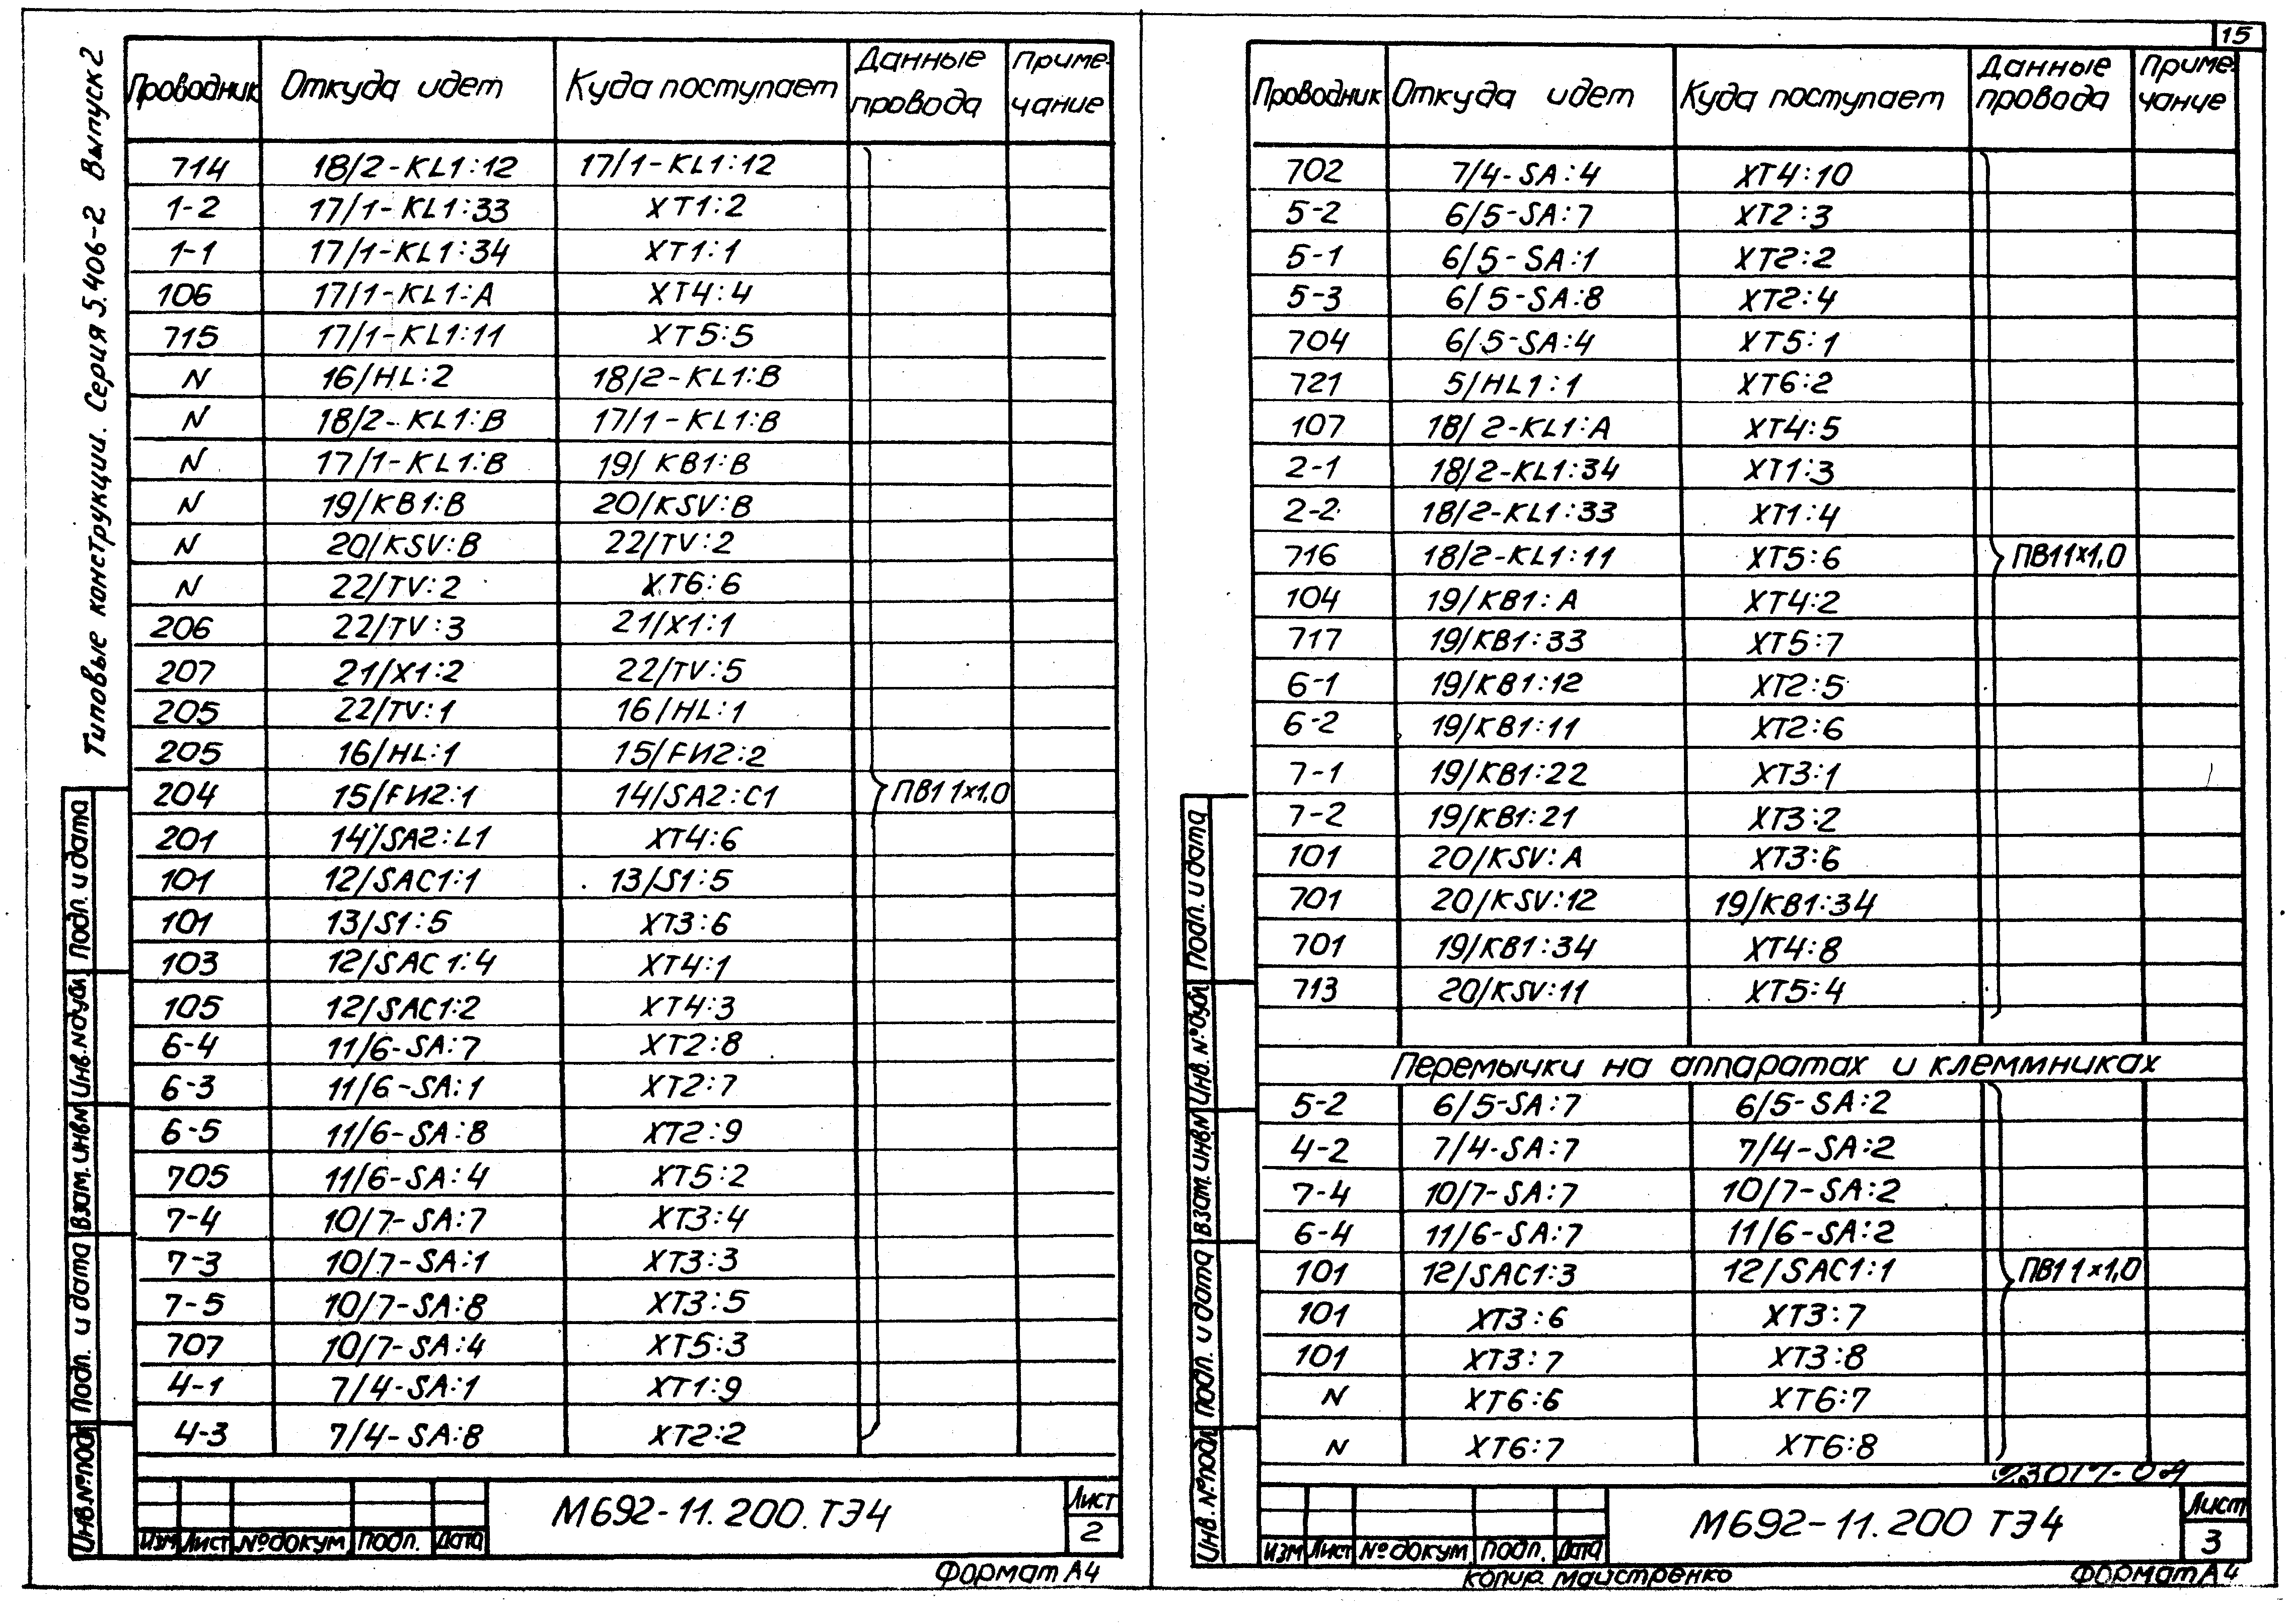 15
Типовые конструкции. Серия 5.406-2 Выпуск 2
Проводник Откуда идет Куда поступает Данные провода Приме-чание
714 18/2-KL1:12 17/1-KL1:12
1-2 17/1-KL1:33 XT1:2
1-1 17/1-KL1:34 XT1:1
106 17/1-KL1:A XT4:4
715 17/1-KL1:11 XT5:5
N 16/HL:2 18/2-KL1:B
N 18/2-KL1:B 17/1-KL1:B
N 17/1-KL1:B 19/KB1:B
N 19/KB1:B 20/KSV:B
N 20/KSV:B 22/TV:2
N 22/TV:2 XT6:6
206 22/TV:3 21/X1:1
207 21/X1:2 22/TV:5
205 22/TV:1 16/HL:1
205 16/HL:1 15/FИ2:2
204 15/FИ2:1 14/SA2:C1 ПВ1 1×1,0
201 14/SA2:L1 XT4:6
101 12/SAC1:1 13/S1:5
101 13/S1:5 XT3:6
103 12/SAC1:4 XT4:1
105 12/SAC1:2 XT4:3
6-4 11/6-SA:7 XT2:8
6-3 11/6-SA:1 XT2:7
6-5 11/6-SA:8 XT2:9
705 11/6-SA:4 XT5:2
7-4 10/7-SA:7 XT3:4
7-3 10/7-SA:1 XT3:3
7-5 10/7-SA:8 XT3:5
707 10/7-SA:4 XT5:3
4-1 7/4-SA:1 XT1:9
4-3 7/4-SA:8 XT2:2
Инв.№подл Подл. и дата Взам.инв№ Инв.№дубл Подл. и дата
Изм Лист №докум Подп. Дата
М692-11.200.ТЭ4
Лист
2
Формат А4
Проводник Откуда идет Куда поступает Данные провода Приме-чание
702 7/4-SA:4 XT4:10
5-2 6/5-SA:7 XT2:3
5-1 6/5-SA:1 XT2:2
5-3 6/5-SA:8 XT2:4
704 6/5-SA:4 XT5:1
721 5/HL1:1 XT6:2
107 18/2-KL1:A XT4:5
2-1 18/2-KL1:34 XT1:3
2-2 18/2-KL1:33 XT1:4
716 18/2-KL1:11 XT5:6 ПВ1 1×1,0
104 19/KB1:A XT4:2
717 19/KB1:33 XT5:7
6-1 19/KB1:12 XT2:5
6-2 19/KB1:11 XT2:6
7-1 19/KB1:22 XT3:1
7-2 19/KB1:21 XT3:2
101 20/KSV:A XT3:6
701 20/KSV:12 19/KB1:34
701 19/KB1:34 XT4:8
713 20/KSV:11 XT5:4
Перемычки на аппаратах и клеммниках
5-2 6/5-SA:7 6/5-SA:2
4-2 7/4-SA:7 7/4-SA:2
7-4 10/7-SA:7 10/7-SA:2
6-4 11/6-SA:7 11/6-SA:2
101 12/SAC1:3 12/SAC1:1 ПВ1 1×1,0
101 XT3:6 XT3:7
101 XT3:7 XT3:8
N XT6:6 XT6:7
N XT6:7 XT6:8
23017-04
Инв.№подл Подл. и дата Взам.инв№ Инв.№дубл Подл. и дата
Изм Лист №докум Подп. Дата
М692-11.200 ТЭ4
Лист
3
Копир. Майстренко
Формат А4